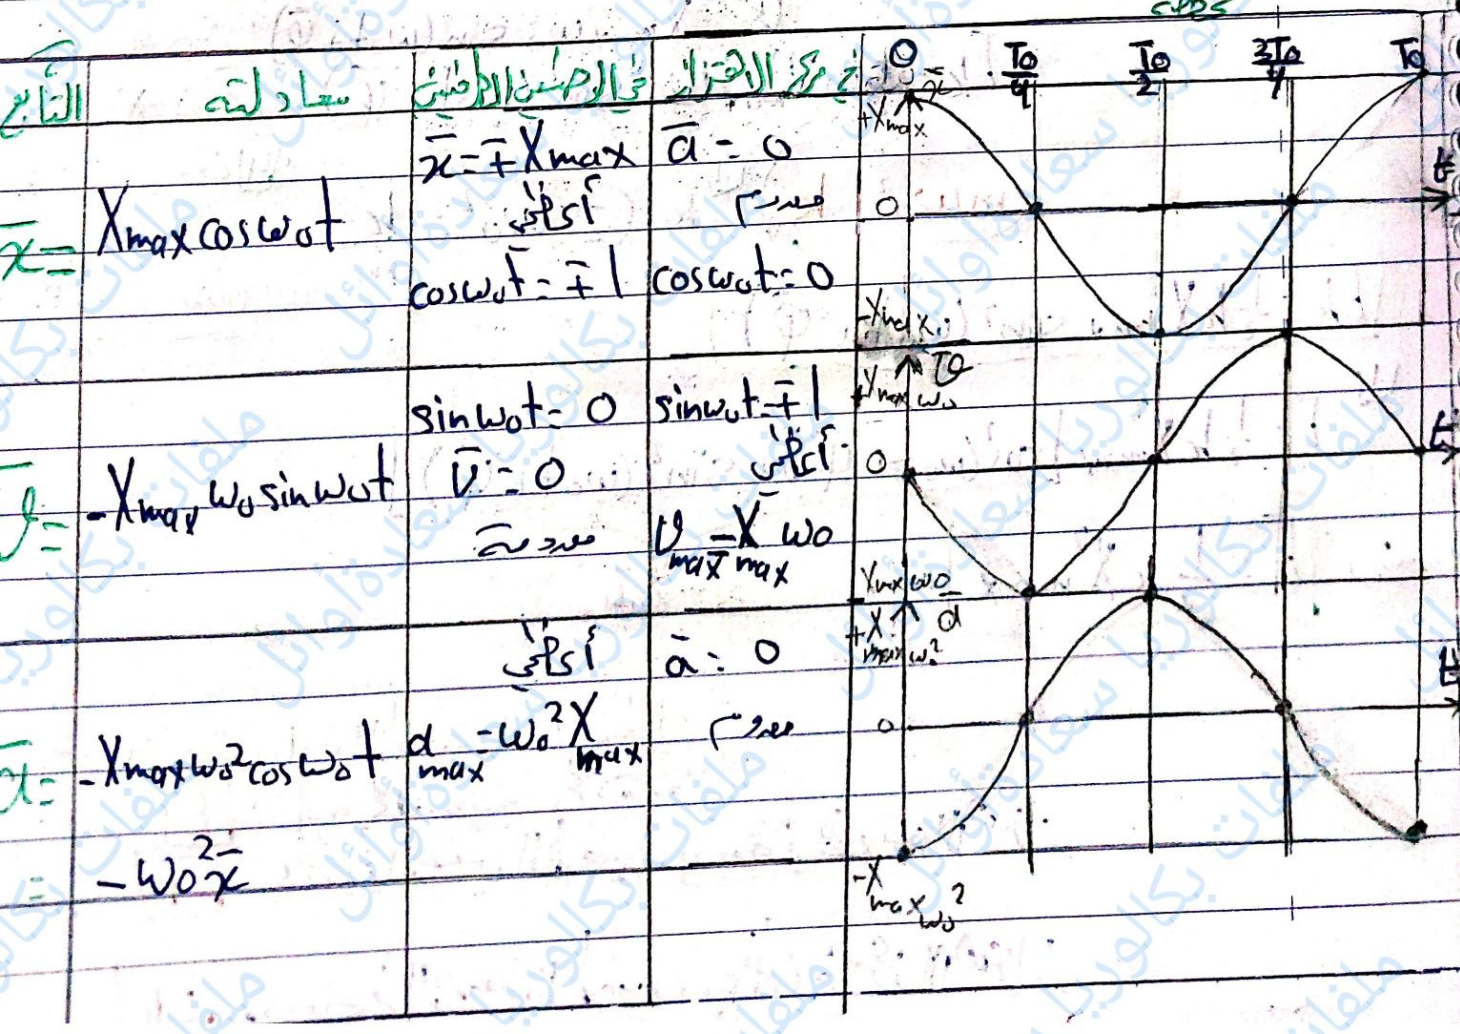 التابع معادلته في الوضعين الطرفيين في مركز الاهتزاز
0 T0/4 T0/2 3T0/4 T0
x̄ = Xmax cosω0t
x̄ = ∓Xmax
أعظمي
cosω0t = ∓1
ā = 0
معدوم
cosω0t = 0
x̄
+Xmax
0
-Xmax
t
v̄ = -Xmax ω0 sinω0t
sinω0t = 0
v̄ = 0
معدومة
sinω0t = ∓1
أعظمي
vmax = ∓Xmax ω0
v̄
+Xmax ω0
0
Xmax ω0
t
ā = -Xmax ω0² cosω0t
= -ω0² x̄
أعظمي
amax = ω0² Xmax
ā = 0
معدوم
ā
+Xmax ω0²
0
-Xmax ω0²
t
ملفات بكالوريا سعادة أوائل